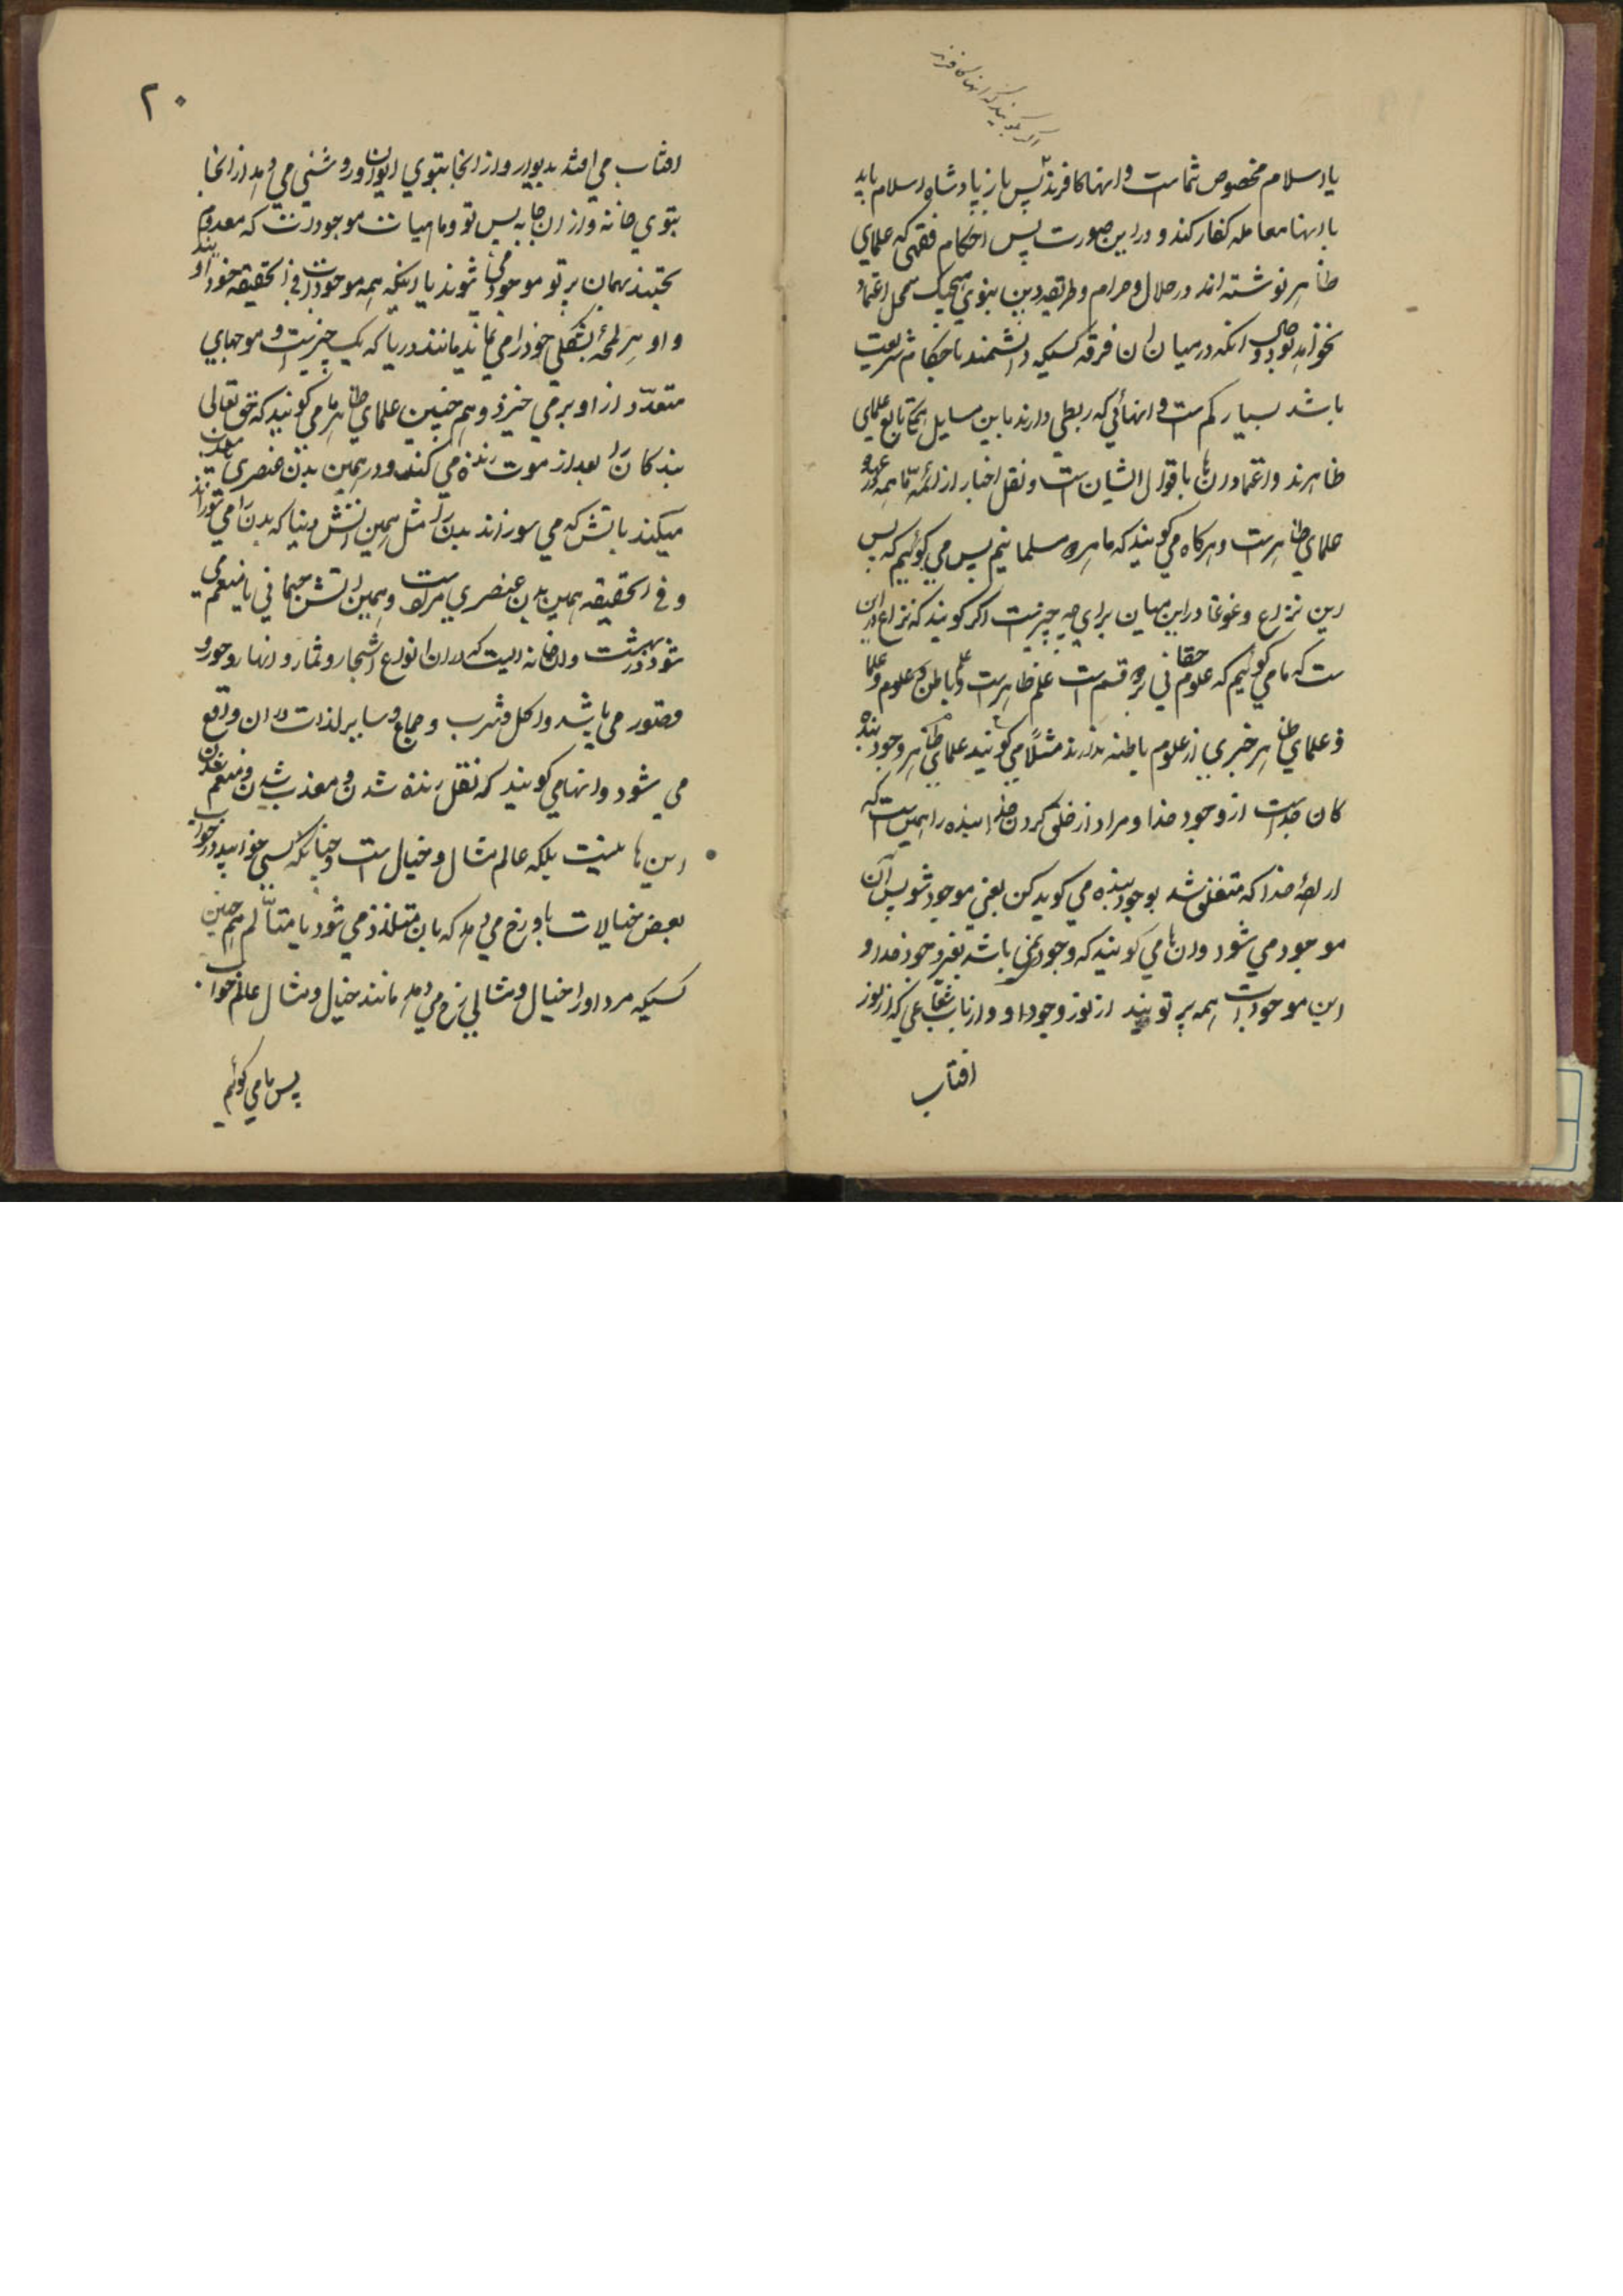 اگر گویند که انها کافرند
یا اسلام مخصوص شماست و انها کافرند پس باز پادشاه اسلام باید
با انها معامله کفار کند و در این صورت پس احکام فقهی که علمای
ظاهر نوشته اند در حلال و حرام و طریقه دین نبوی هیچیک محل اعتماد
نخواهد بود و حال انکه در میان ان فرقه کسیکه دانشمند باحکام شریعت
باشد بسیار کم است و انهائی که ربطی دارند باین مسایل همه تابع علمای
ظاهرند و اعتماد ان ها باقوال ایشان است و نقل اخبار از ائمه ما همه
علمای ظاهر است و هرگاه می گویند که ما همه مسلمانیم پس می گوئیم که پس
این نزاع و غوغا در این میان برای چه چیز است اگر گویند که نزاع در این
ست که ما می گوئیم که علوم حقانی بر دو قسم است علم ظاهر است و علم باطن و علوم
و علمای ظاهر خبری از علوم باطنه ندارند مثلا می گویند علمای ظاهر وجود بنده
کان جداست از وجود خدا و مراد از خلق کردن خدا بنده را همین است که
اراده خدا که متعلق شد بوجود بنده می گوید کن یعنی موجود شو پس آن
موجود می شود و ان ها می گویند که وجود نمی باشد بغیر وجود خدا و
این موجودات همه پرتویند از نور وجود او و از باب شعاعی که از نور
افتاب
۲۰
افتاب می افتد بدیوار و از انجا بتوی ایوان و روشنی می دهد از انجا
بتوی خانه و از ان جا به پس تو و ماهیات موجودات که معدوم
بحتند بهمان پرتو موجود می شوند یا اینکه همه موجودات فی الحقیقه خود او
و او هر لحمه بشکلی خود را می نماید مانند دریا که یک چیز است و موجهای
متعدد از او بر می خیزد و هم چنین علمای ظاهر ما می گویند که حق تعالی
بندکان را بعد از موت زنده می کند و در همین بدن عنصری
میکند باتش که می سوزاند بدن را مثل همین اتش دنیا که بدن را می سوزاند
و فی الحقیقه همین بدن عنصری مرکب است و همین اتش جسمانی یا منعم می
شود در بهشت و ان خانه ایست که در ان انواع اشجار و ثمار و انهار و حور و
قصور می باشد و اکل و شرب و جماع و سایر لذات در ان واقع
می شود و انها می گویند که نقل زنده شدن و معذب شدن و منعم شدن
این ها نیست بلکه عالم مثال و خیال است و چنانکه کسی خوابید در خواب
بعض خیالات باو رخ می دهد که بان متلذذ می شود یا متألم هم چنین
کسیکه مرد او را خیال و مثالی رخ می دهد مانند خیال و مثال عالم خواب
پس ما می گوئیم